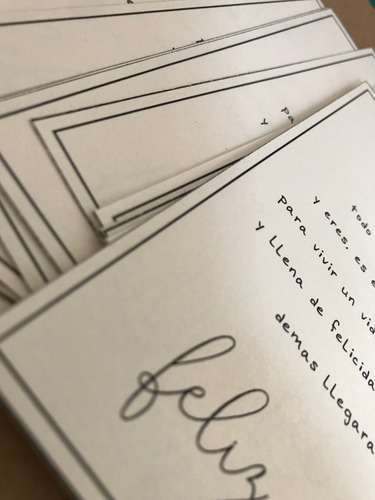 Pa
y
todo
y eres, es
para vivir un vid
y llena de felicida
demas llegara
feliz